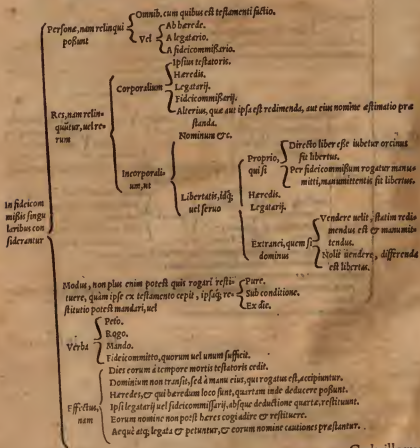 Omnib. cum quibus est testamenti factio.
Personæ, nam relinqui
possunt
Vel
Ab hærede.
A legatario.
A fideicommissario.
Res, nam relin-
quūtur, uel re-
rum
Corporalium
Ipsius testatoris.
Hæredis.
Legatarij.
Fideicommissarij.
Alterius, quæ aut ipsa est redimenda, aut eius nomine æstimatio præ
standa.
Incorporali-
um, ut
Nominum &c.
Libertatis, idq;
uel seruo
Proprio,
qui si
Directo liber esse iubetur orcinus
fit libertus.
Per fideicommissum rogatur manu-
mitti, manumittentis fit libertus.
Hæredis.
Legatarij.
Extranei, quem si
dominus
Vendere uelit, statim redi-
mendus est & manumit-
tendus.
Nolit uendere, differenda
est libertas.
In fideicom
missis singu
laribus con
siderantur
Modus, non plus enim potest quis rogari resti-
tuere, quàm ipse ex testamento cepit, ipsaq; re-
stitutio potest mandari, uel
Pure.
Sub conditione.
Ex die.
Verba
Peto.
Rogo.
Mando.
Fideicommitto, quorum uel unum sufficit.
Effectus,
nam
Dies eorum à tempore mortis testatoris cedit.
Dominium non transit, sed à manu eius, qui rogatus est, accipiuntur.
Hæredes, & qui hæredum loco sunt, quartam inde deducere possunt.
Ipsi legatarij uel fideicommissarij, absque deductione quartæ, restituunt.
Eorum nomine non potest hæres cogi adire & restituere.
Aequè atq; legata & petuntur, & eorum nomine cautiones præstantur.